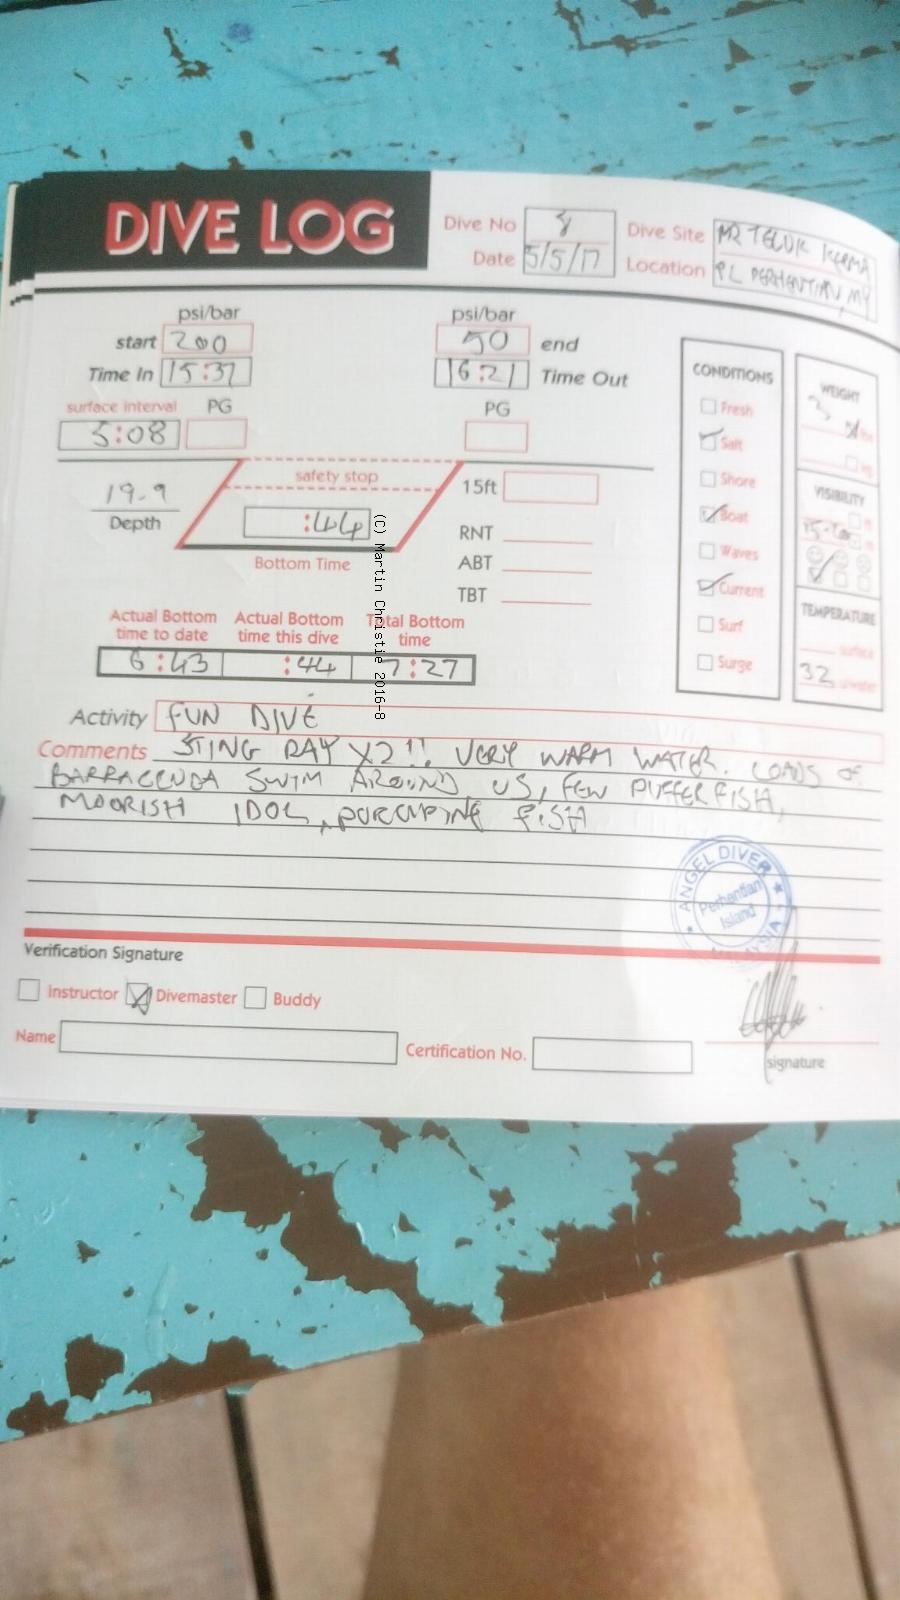 DIVE LOG
Dive No 8
Date 5/5/17
Dive Site MR TELUK KERMA
Location PL PERHENTIAN, MY
psi/bar psi/bar
start 200 50 end
Time In 15:37 16:21 Time Out
surface interval PG PG
5:08
safety stop
19.9
Depth
:44
Bottom Time
15ft
RNT
ABT
TBT
CONDITIONS
Fresh
Salt
Shore
Boat
Waves
Current
Surf
Surge
WEIGHT
3
lbs
kg
VISIBILITY
ft
m
TEMPERATURE
surface
32 u/water
Actual Bottom time to date
Actual Bottom time this dive
Total Bottom time
6:43 :44 7:27
Activity FUN DIVE
Comments STING RAY X2!! VERY WARM WATER. LOADS OF
BARRACUDA SWIM AROUND US, FEW PUFFERFISH,
MOORISH IDOL, PORCUPINE FISH
ANGEL DIVER
Perhentian
Island
MALAYSIA
Verification Signature
Instructor Divemaster Buddy
Name Certification No.
signature
(C) Martin Christie 2016-8